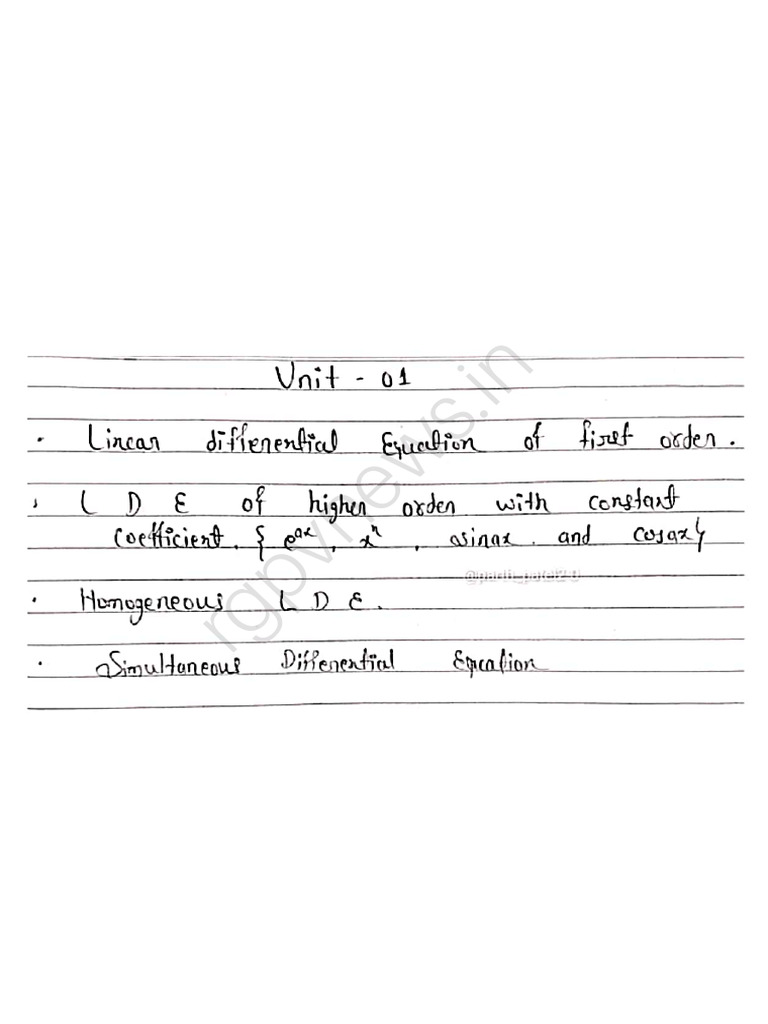 Unit - 01
. Linear differential Equation of first order.
, L D E of higher order with constant
coefficient. { e^ax, x^n, sinax. and cosax}
. Homogeneous L D E.
. Simultaneous Differential Equation
rgpvnews.in